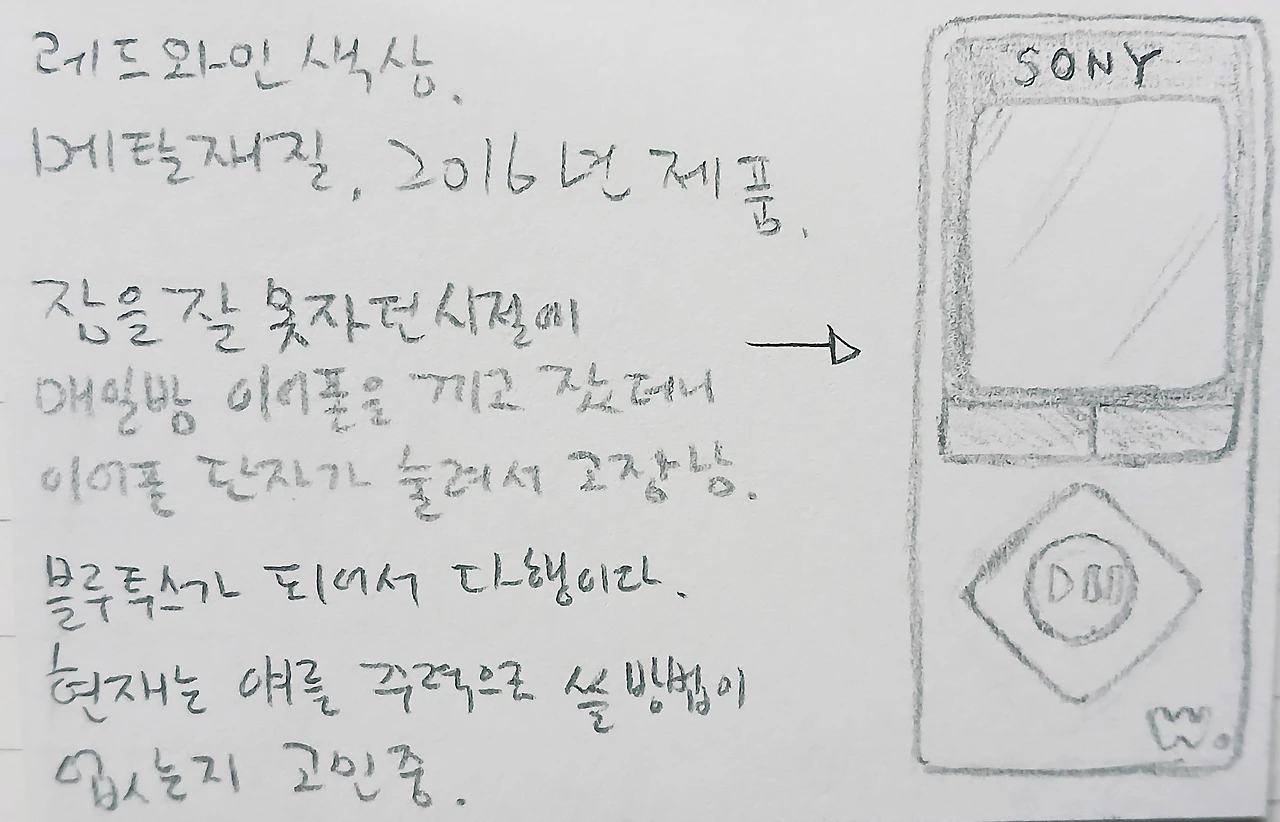 레드와인 색상.
메탈재질. 2016년 제품.
잠을 잘 못자던 시절에
매일밤 이어폰을 끼고 잤더니
이어폰 단자가 눌려서 고장남.
블루투스가 되어서 다행이다.
현재는 얘를 주력으로 쓸 방법이
없는지 고민중.
SONY
W.